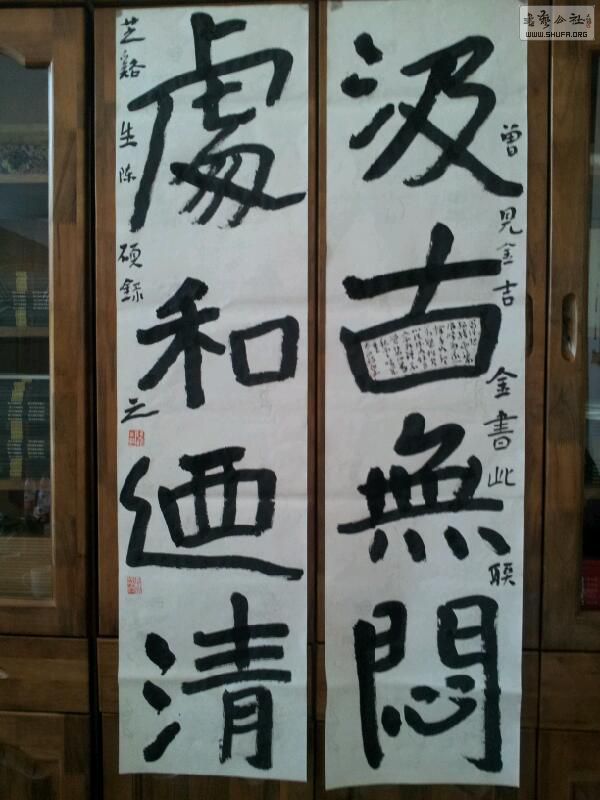 書藝公社
WWW.SHUFA.ORG
曾見金吉金書此聯
汲古無悶
處和迺清
芝谿生陈硕録之